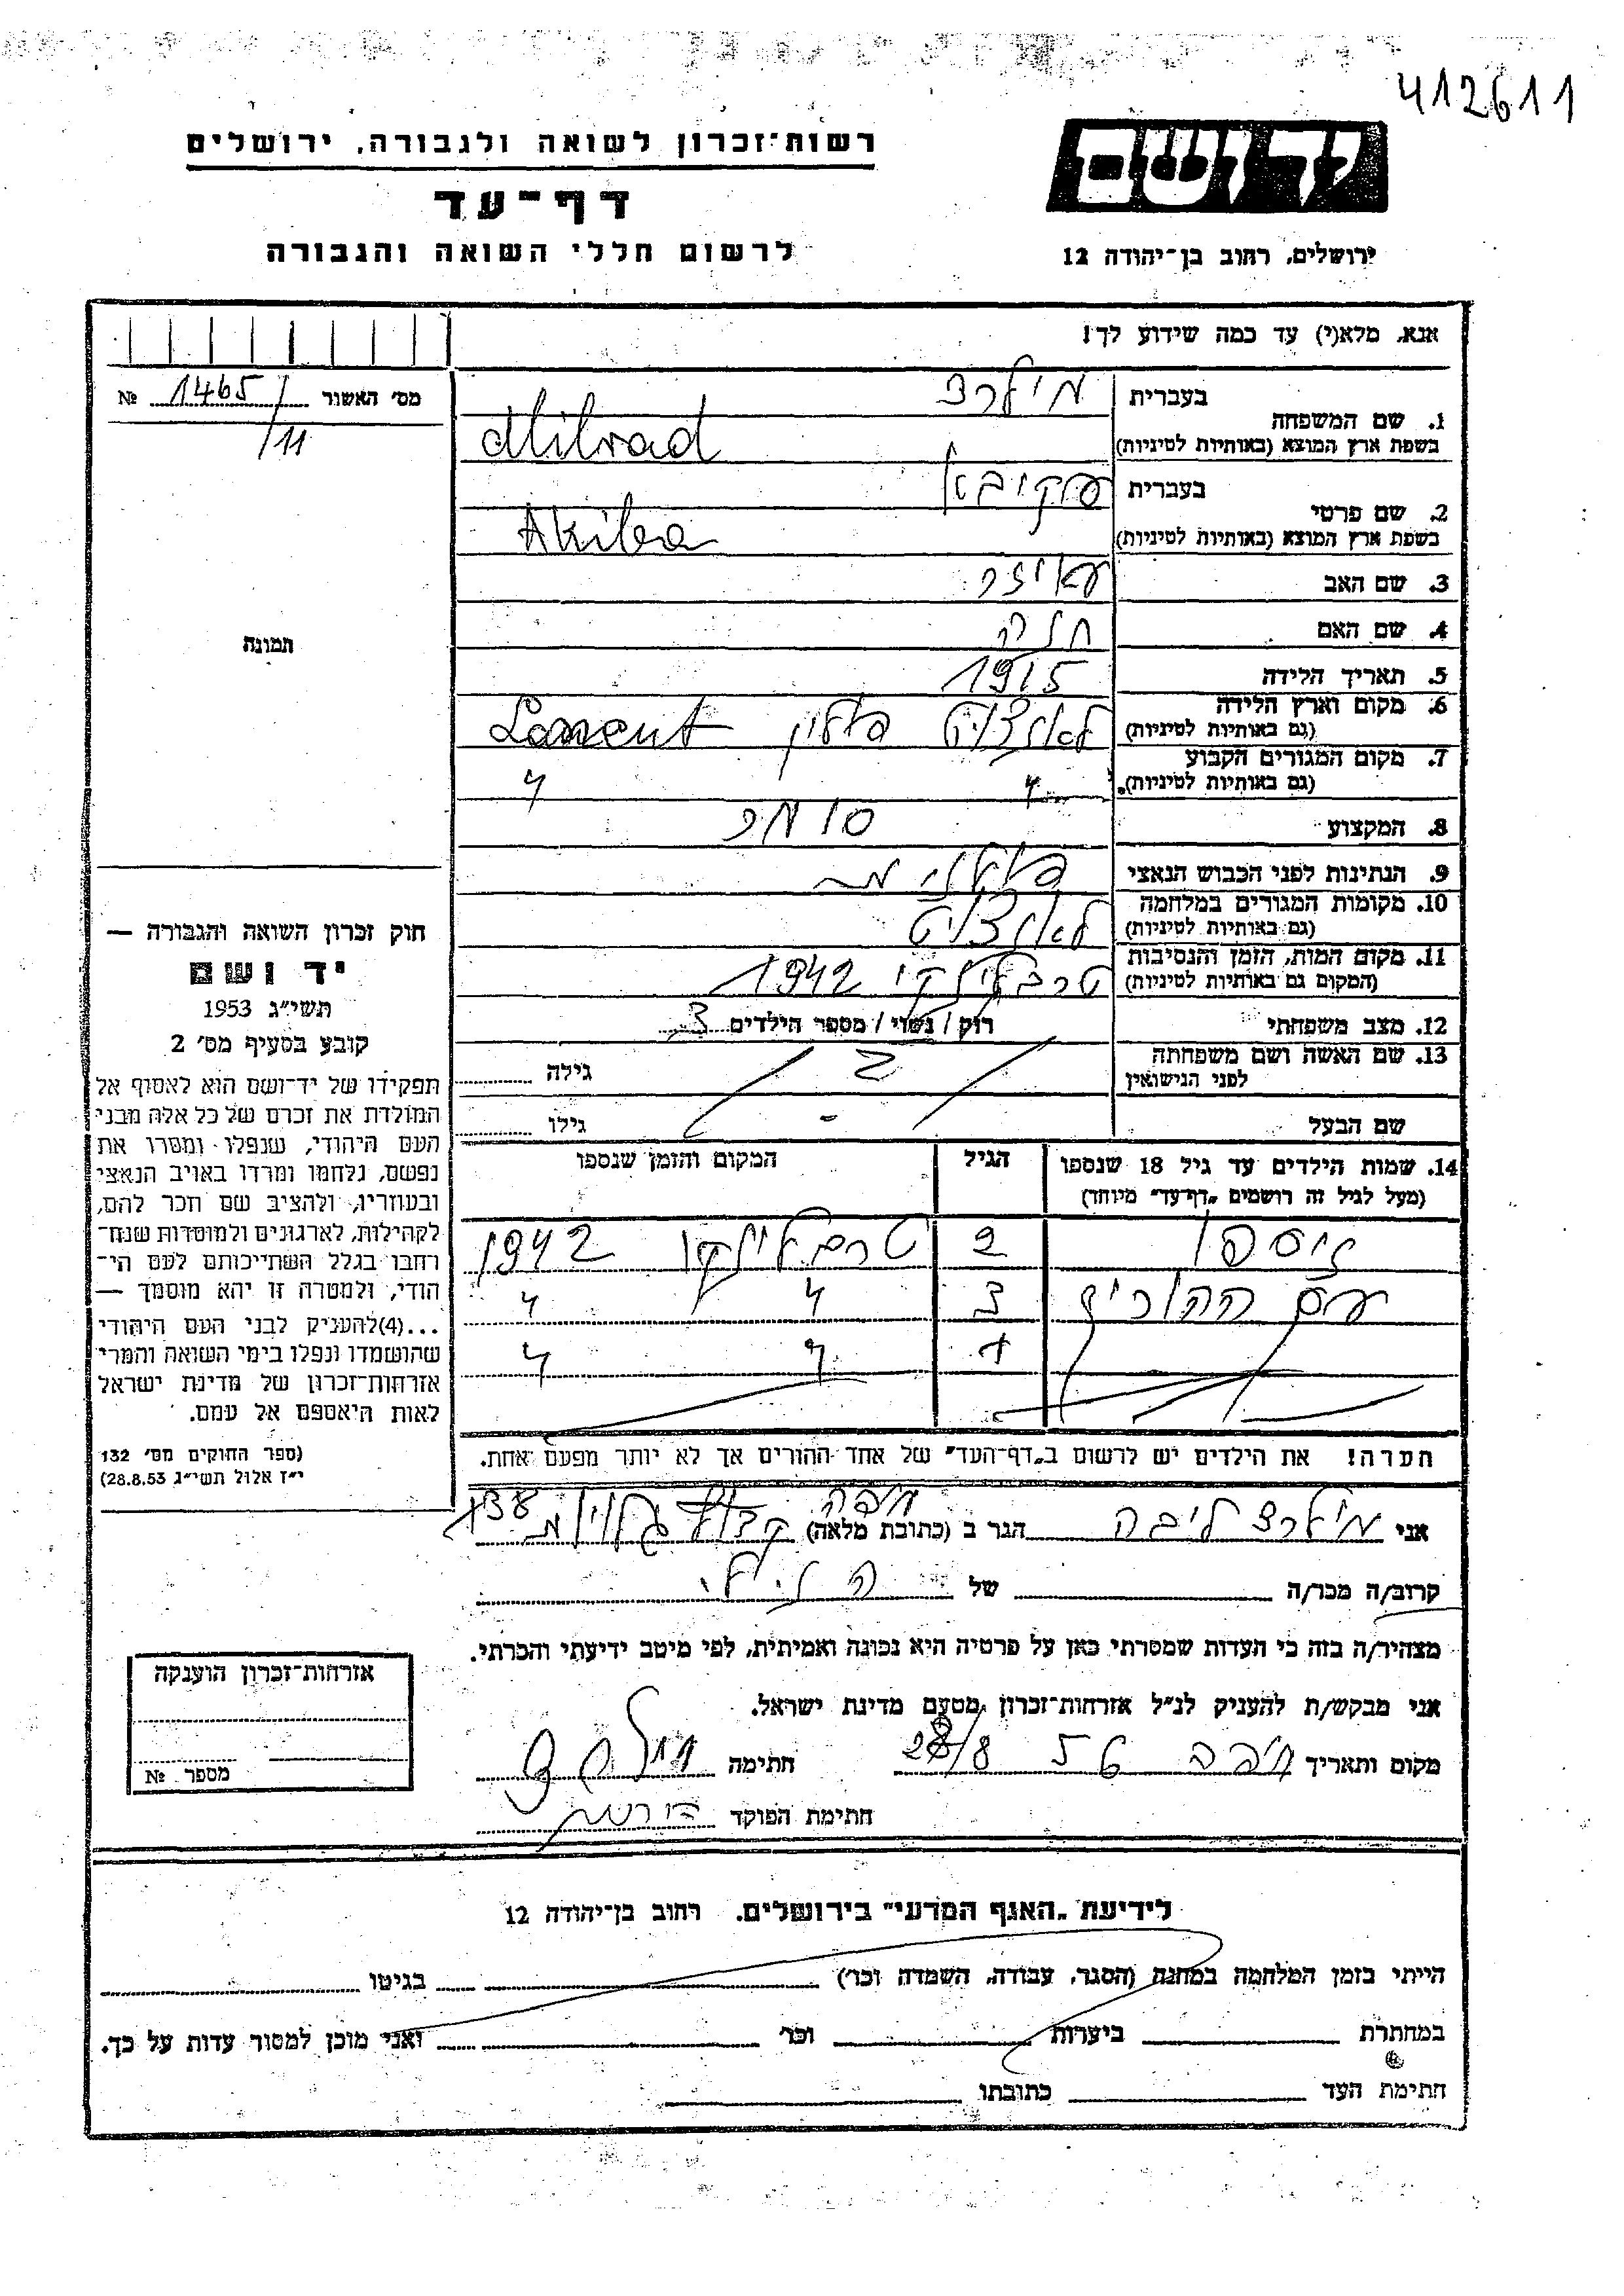 412611
רשות־זכרון לשואה ולגבורה, ירושלים
דף־עד
לרשום חללי השואה והגבורה
יד ושם
ירושלים, רחוב בן־יהודה 12
אנא, מלא(י) עד כמה שידוע לך!
מס׳ האשור 1465/11 №
1. שם המשפחה
בעברית מילרד
בשפת ארץ המוצא (באותיות לטיניות) Milrad
2. שם פרטי
בעברית עקיבא
בשפת ארץ המוצא (באותיות לטיניות) Akiba
3. שם האב
4. שם האם
5. תאריך הלידה 1915
6. מקום וארץ הלידה
(גם באותיות לטיניות) פולין
7. מקום המגורים הקבוע
(גם באותיות לטיניות) " "
8. המקצוע סוחר
9. הנתינות לפני הכבוש הנאצי פולנית
10. מקומות המגורים במלחמה
(גם באותיות לטיניות)
11. מקום המות, הזמן והנסיבות
(המקום גם באותיות לטיניות) טרבלינקי 1942
12. מצב משפחתי רווק / נשוי / מספר הילדים 3
13. שם האשה ושם משפחתה
לפני הנישואין גילה
שם הבעל - גילו
14. שמות הילדים עד גיל 18 שנספו
(מעל לגיל זה רושמים „דף־עד״ מיוחד)
הגיל
המקום והזמן שנספו
2 טרבלינקי 1942
עם ההורים 3 " "
1 " "
הערה! את הילדים יש לרשום ב„דף־העד״ של אחד ההורים אך לא יותר מפעם אחת.
אני מילרד ליבה הגר ב (כתובת מלאה) חיפה
קרוב/ה מכר/ה של
מצהיר/ה בזה כי העדות שמסרתי כאן על פרטיה היא נכונה ואמיתית, לפי מיטב ידיעתי והכרתי.
אני מבקש/ת להעניק לנ״ל אזרחות־זכרון מטעם מדינת ישראל.
מקום ותאריך חיפה 56 28/8 חתימה
חתימת הפוקד
תמונה
חוק זכרון השואה והגבורה —
יד ושם
תשי״ג 1953
קובע בסעיף מס׳ 2
תפקידו של יד־ושם הוא לאסוף אל
המולדת את זכרם של כל אלה מבני
העם היהודי, שנפלו ומסרו את
נפשם, נלחמו ומרדו באויב הנאצי
ובעוזריו, ולהציב שם וזכר להם,
לקהילות, לארגונים ולמוסדות שנח־
רבו בגלל השתייכותם לעם הי־
הודי, ולמטרה זו יהא מוסמך —
...(4)להעניק לבני העם היהודי
שהושמדו ונפלו בימי השואה והמרי
אזרחות־זכרון של מדינת ישראל
לאות היאספם אל עמם.
(ספר החוקים מס׳ 132
י״ז אלול תשי״ג 28.8.53)
אזרחות־זכרון הוענקה
מספר №
לידיעת „האגף המדעי״ בירושלים. רחוב בן־יהודה 12
הייתי בזמן המלחמה במחנה (הסגר, עבודה, השמדה וכו׳) בגיטו
במחתרת ביערות וכו׳ ואני מוכן למסור עדות על כך.
חתימת העד כתובתו